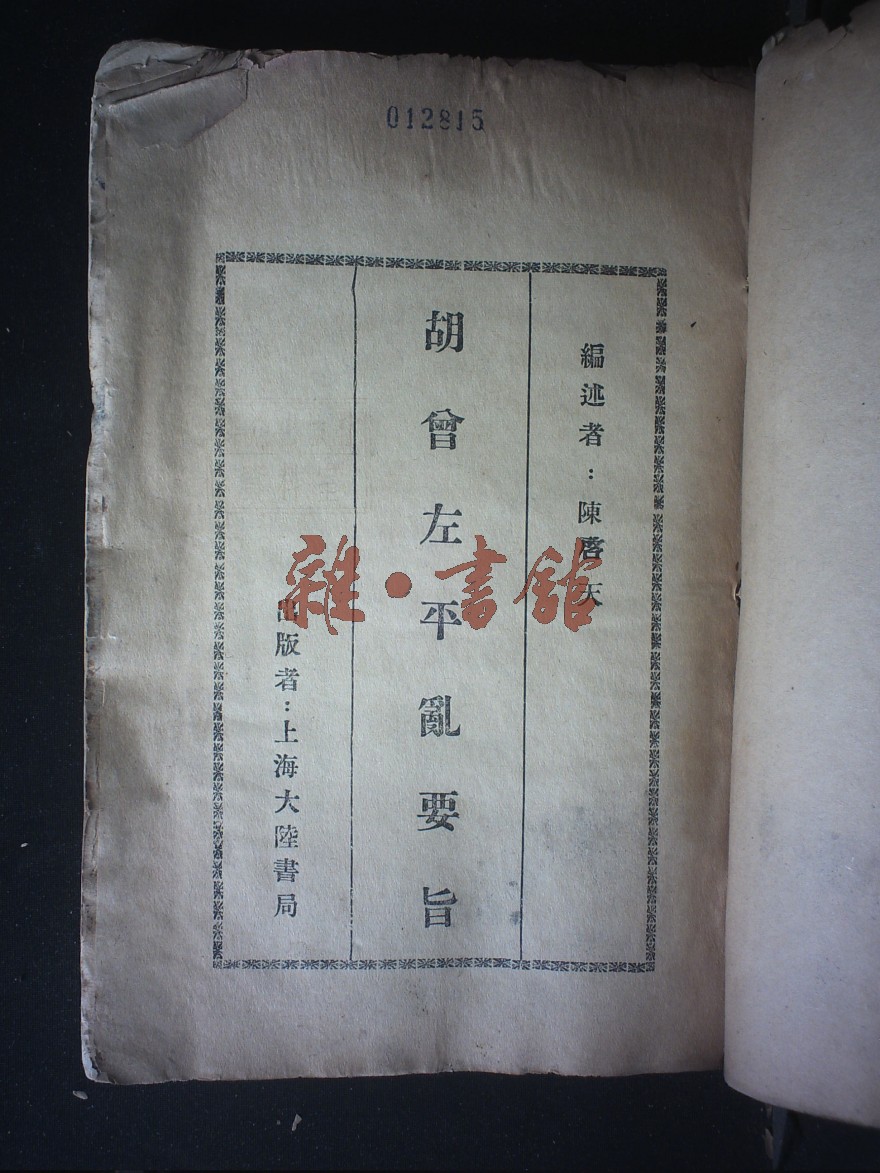 012815
編述者：陳啓天
胡曾左平亂要旨
出版者：上海大陸書局
雜·書館